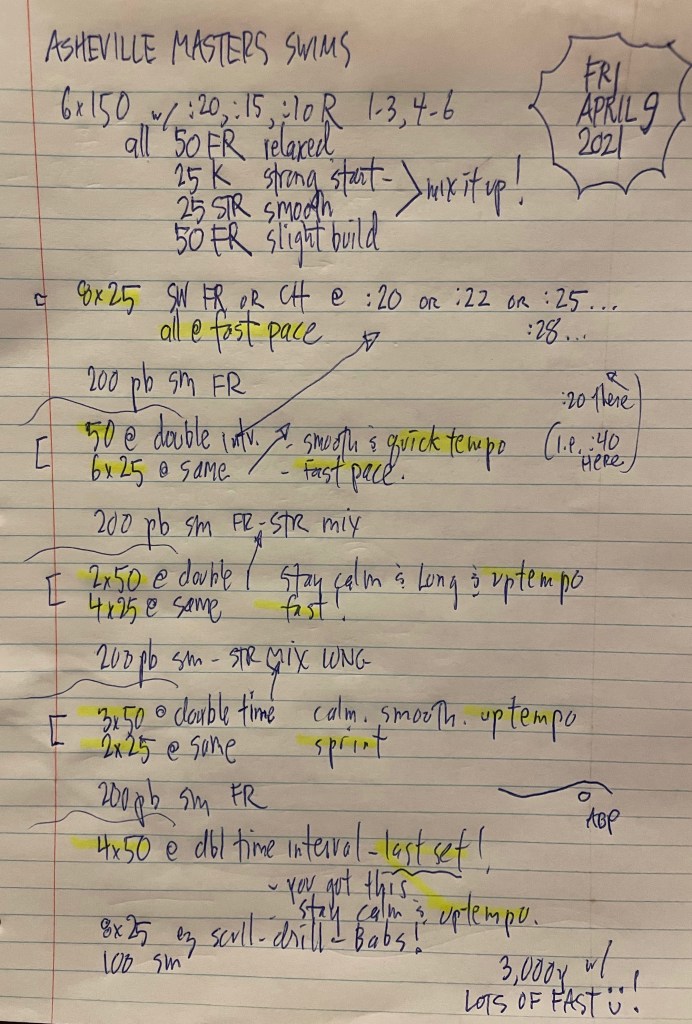 ASHEVILLE MASTERS SWIMS
FRI
APRIL 9
2021
6x150 w/ :20, :15, :10 R 1-3, 4-6
all 50 FR relaxed
25 K strong start-
25 STR smooth
50 FR slight build
mix it up!
8x25 SW FR OR CH @ :20 OR :22 OR :25...
all @ fast pace :28...
200 pb sm FR
:20 there
(i.e. :40
HERE)
50 @ double intv. - smooth & quick tempo
6x25 @ same - fast pace.
200 pb sm FR-STR mix
2x50 @ double stay calm & long & uptempo
4x25 @ same fast!
200 pb sm - STR MIX LONG
3x50 @ double time calm. smooth. uptempo
2x25 @ same sprint
200 pb sm FR
ABP
4x50 @ dbl time interval - last set!
- you got this
stay calm & uptempo.
8x25 ez scull-drill-Babs!
100 sm
3,000y w/
LOTS OF FAST !